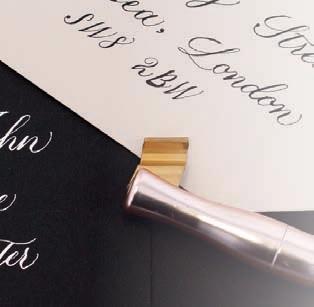 y Stre
ea, London
SW8 2BW
ohn
e
ter